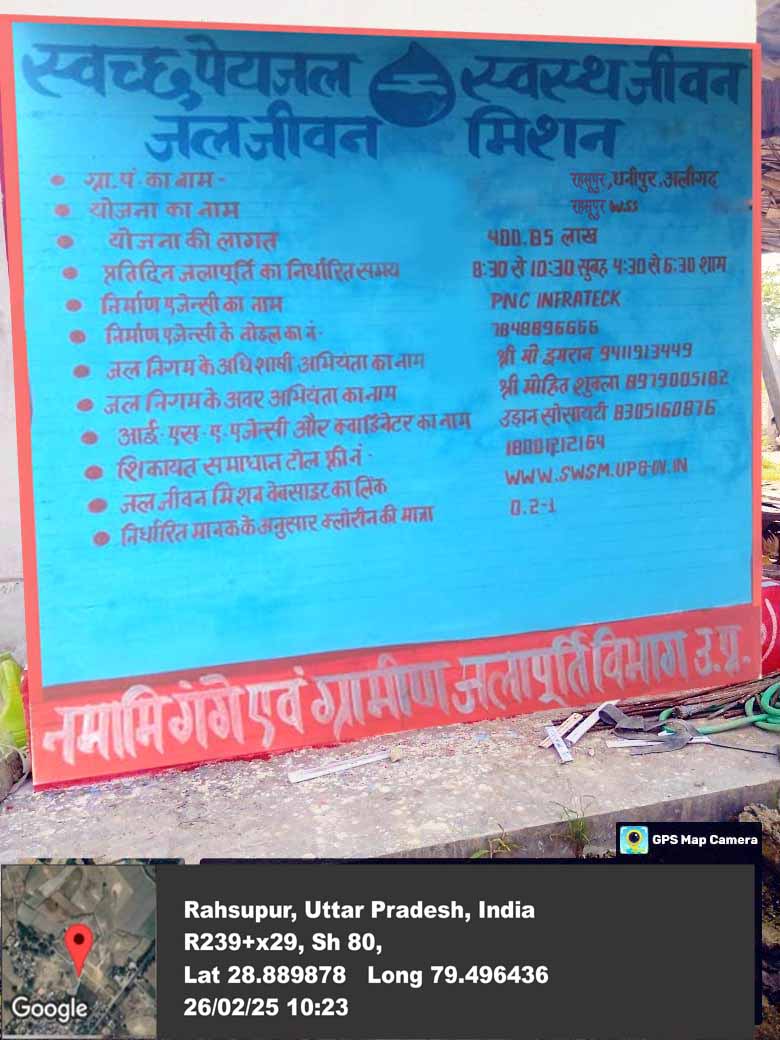 स्वच्छ पेयजल स्वस्थ जीवन
जल जीवन मिशन
ग्रा.पं. का नाम - रहसूपुर, धनीपुर, अलीगढ
योजना का नाम रहसूपुर W.SS
योजना की लागत 400.85 लाख
प्रतिदिन जलापूर्ति का निर्धारित समय 8:30 से 10:30 सुबह 4:30 से 6:30 शाम
निर्माण एजेन्सी का नाम PNC INFRATECK
निर्माण एजेन्सी के नोडल का नं- 7848896666
जल निगम के अधिशाषी अभियंता का नाम श्री मो इमरान 9411913449
जल निगम के अवर अभियंता का नाम श्री मोहित शुक्ला 8979005182
आई-एस-ए-एजेन्सी और क्वार्डिनेटर का नाम उड़ान सोसायटी 8305160876
शिकायत समाधान टोल फ्री नं- 18001212164
जल जीवन मिशन वेबसाइट का लिंक WWW.SWSM.UPGOV.IN
निर्धारित मानक के अनुसार क्लोरीन की मात्रा 0.2-1
नमामि गंगे एवं ग्रामीण जलापूर्ति विभाग उ.प्र.
GPS Map Camera
Rahsupur, Uttar Pradesh, India
R239+x29, Sh 80,
Lat 28.889878 Long 79.496436
26/02/25 10:23
Google